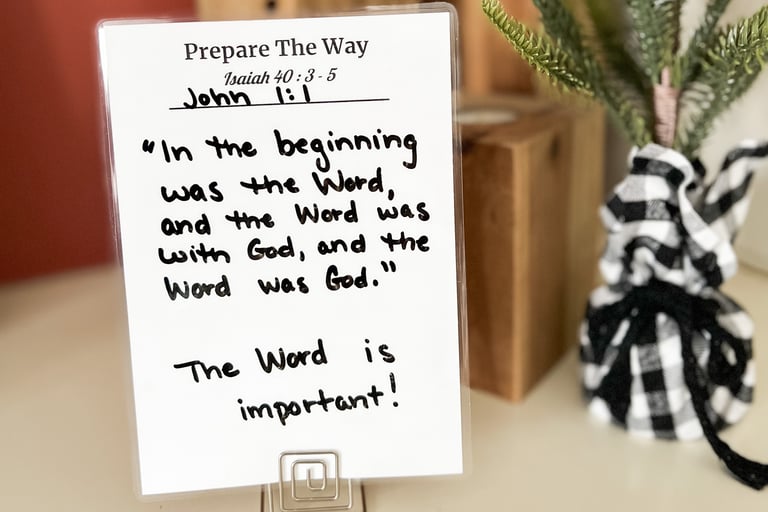 Prepare The Way
Isaiah 40 : 3 - 5
John 1:1
"In the beginning
was the Word,
and the Word was
with God, and the
Word was God."
The Word is
important!